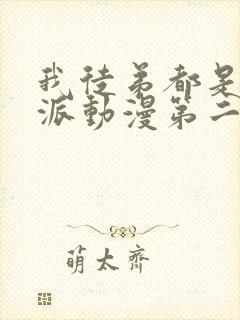 我徒弟都是
派動漫第二
萌太齊